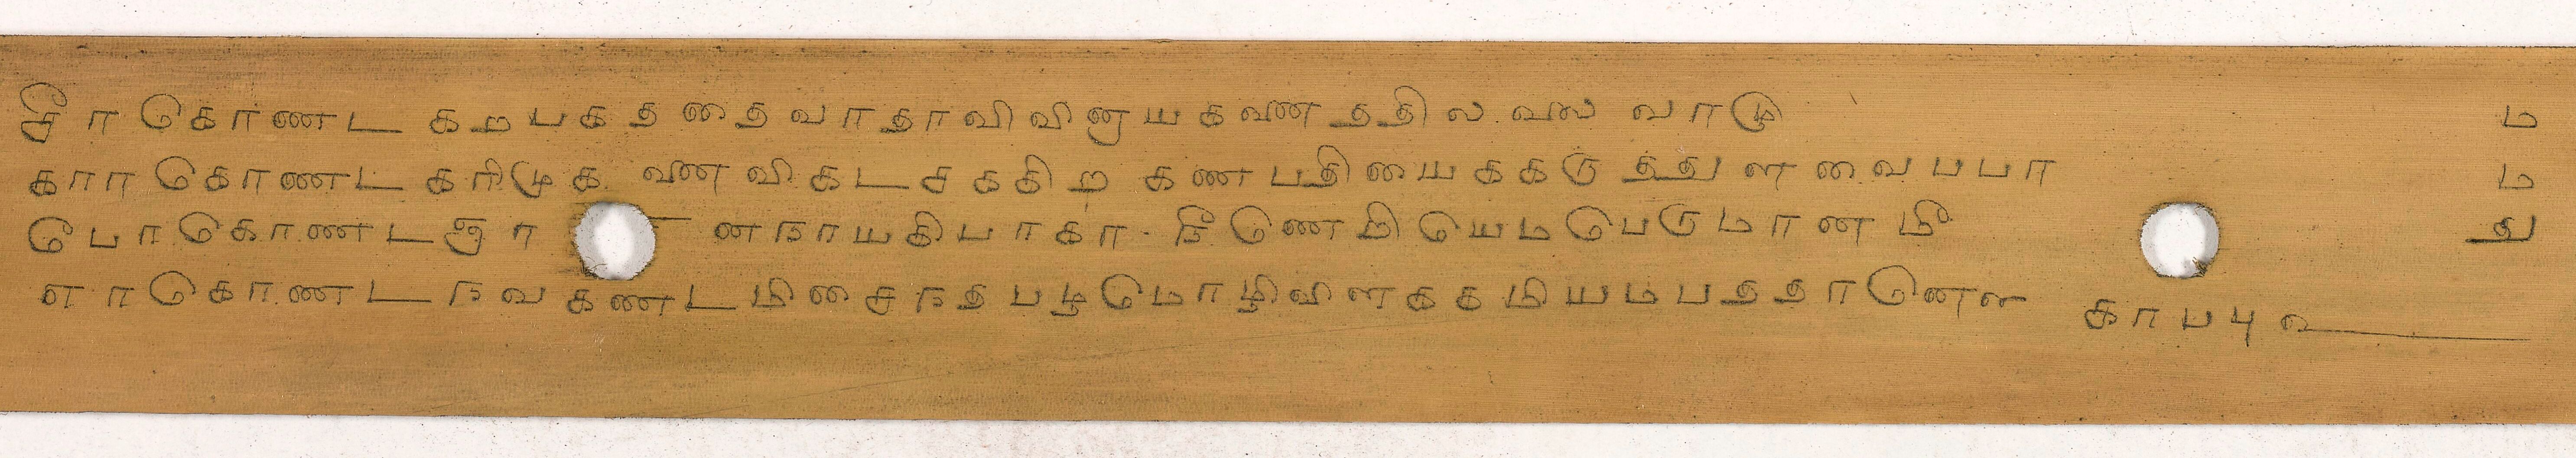 சீர கொண்ட கறபகததைவாதாவிவினயகனணததில வல வாடு ம
காரகொணட கரிமுக னணவிகடசககிற கணபதியைககருததுளவைபபாம
பொகொணடஞா னநாயகிபாகா நீணெமியெமபெருமானமீது
எரகொணடநவகணடமிசைநதபழமொழிவிளககமியமபததானெ காபபு